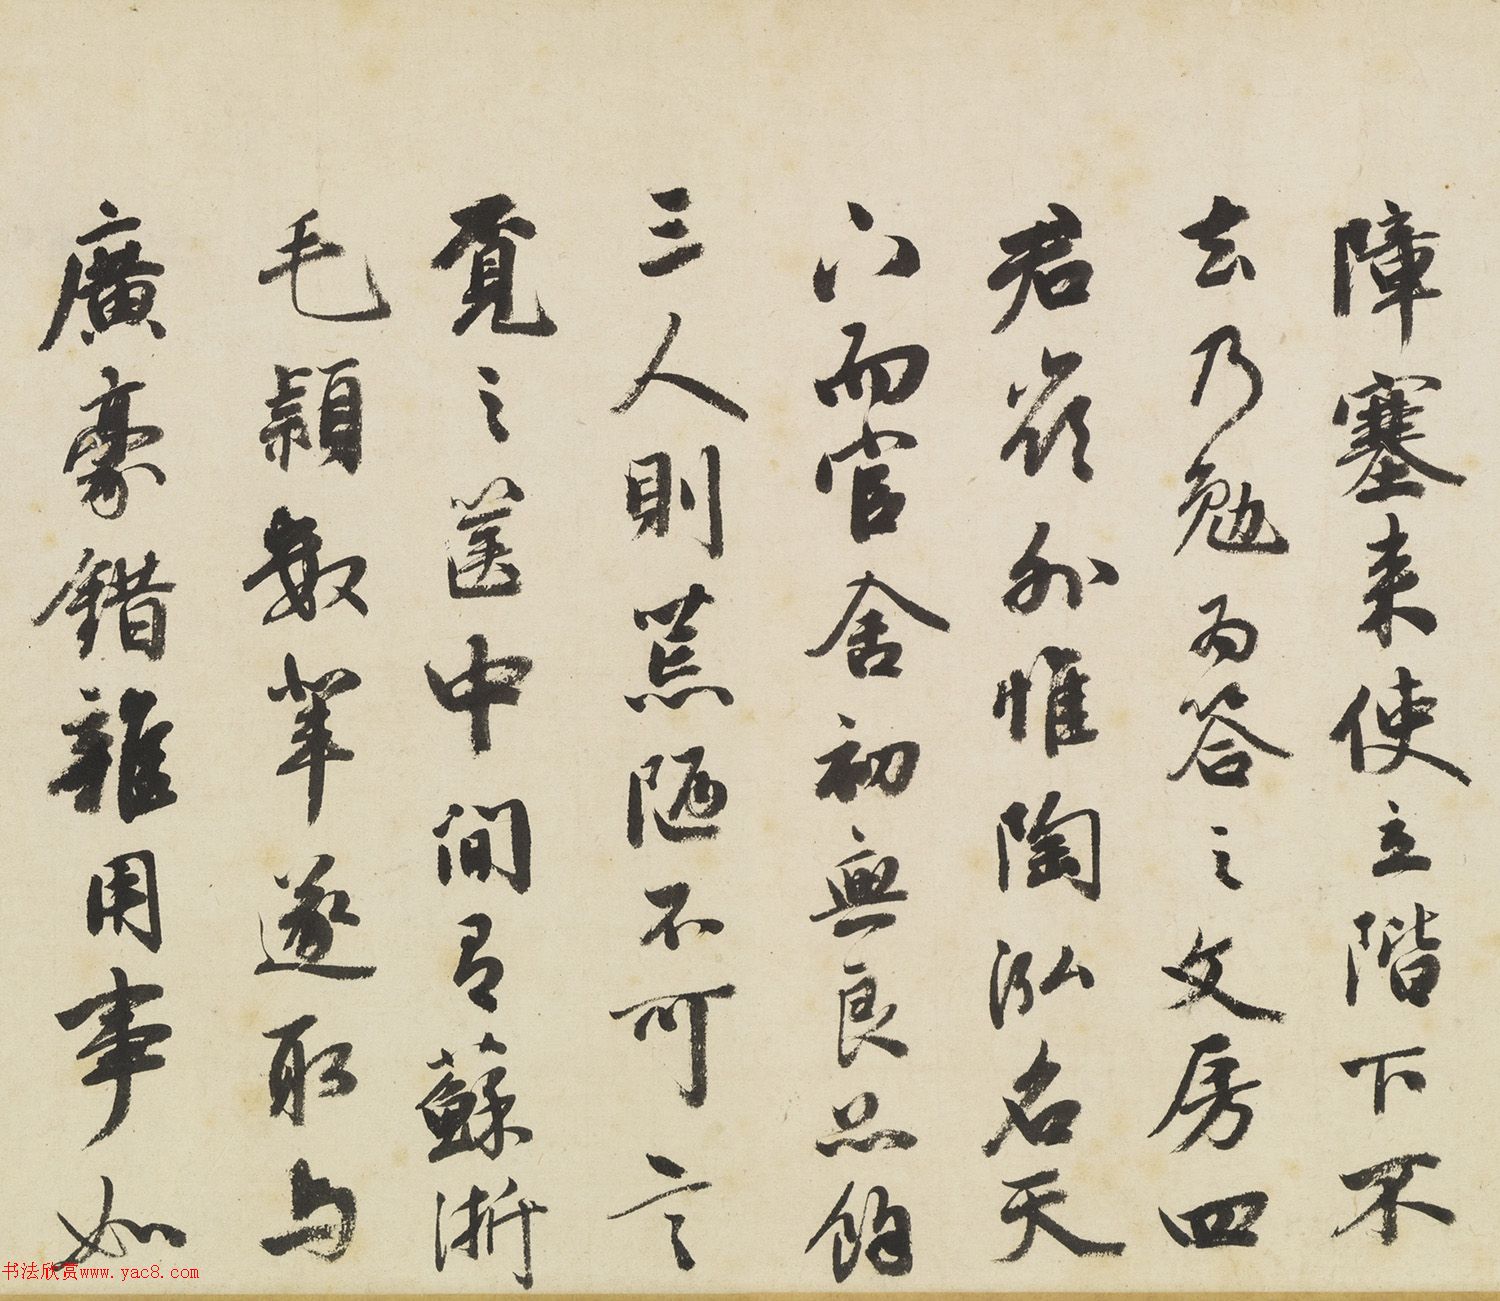 障塞来使立階下不
去乃勉而答之文房四
君嶺外惟陶泓名天
下而官舍初無良品餘
三人則荒陋不可言
覓之篋中間有蘇浙
毛穎數輩遂取与
廣豪錯雜用事如
书法欣赏www.yac8.com